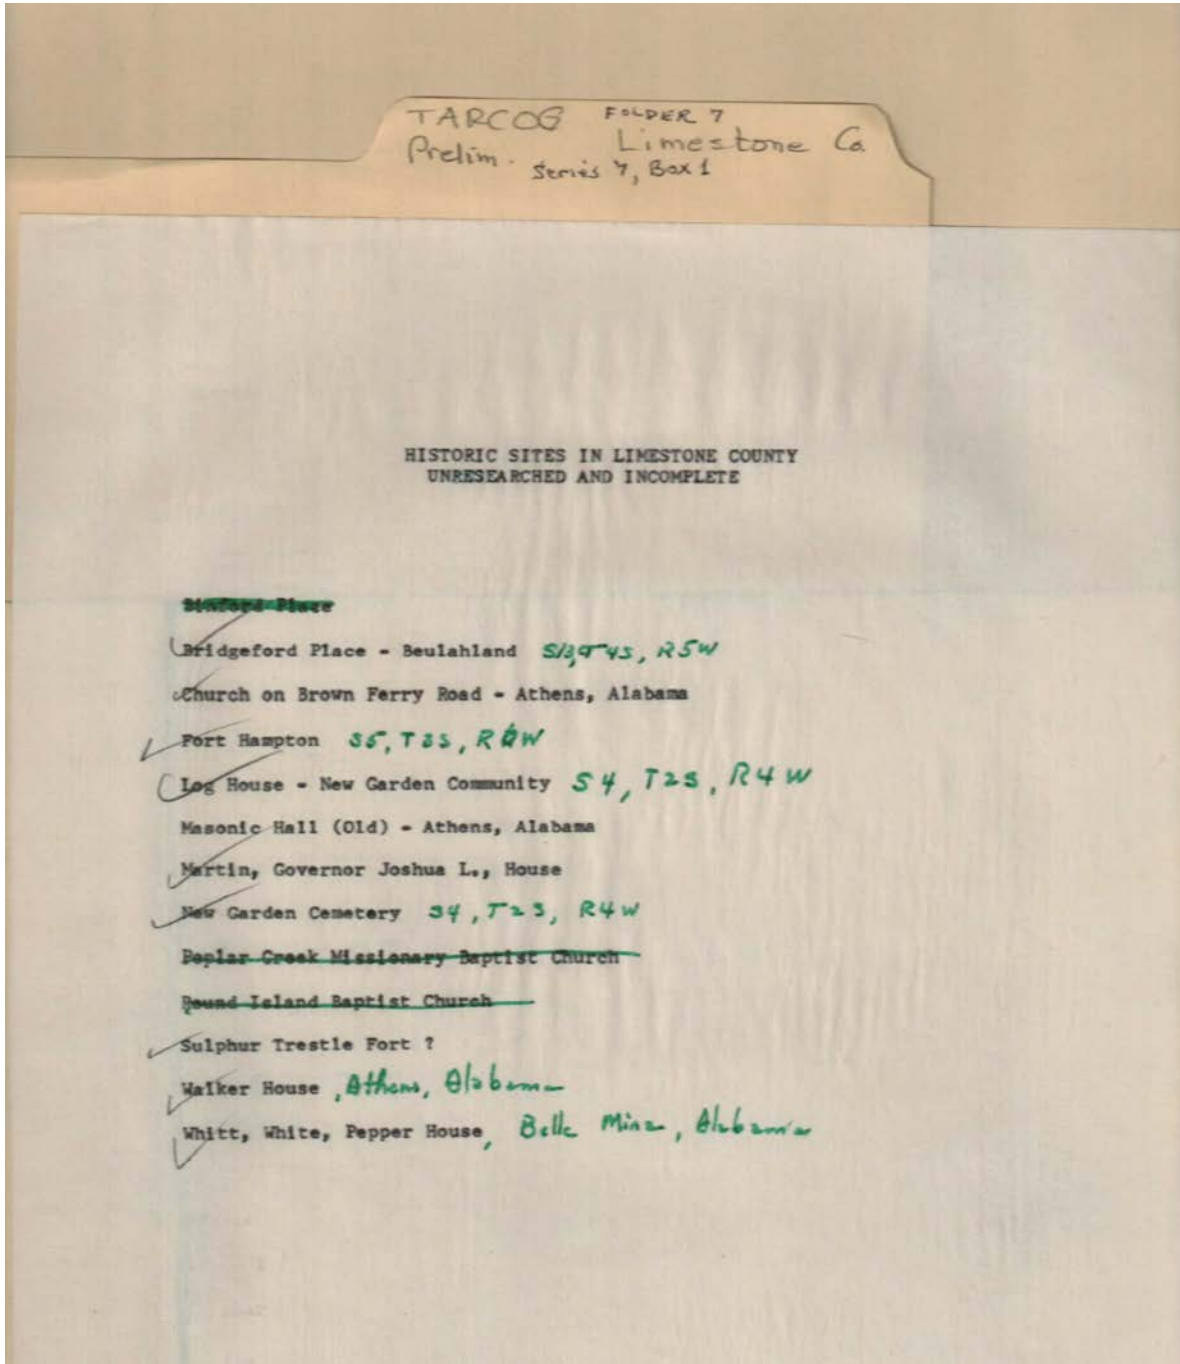 TARCOG FOLDER 7
Prelim. Limestone Co.
Series 7, Box 1
HISTORIC SITES IN LIMESTONE COUNTY
UNRESEARCHED AND INCOMPLETE
Binford Place
Bridgeford Place - Beulahland T4S, R5W
Church on Brown Ferry Road - Athens, Alabama
Fort Hampton S5, T3S,
Log House - New Garden Community S4, T2S, R4W
Masonic Hall (Old) - Athens, Alabama
Martin, Governor Joshua L., House
New Garden Cemetery S4, T2S, R4W
Poplar Creek Missionary Baptist Church
Round Island Baptist Church
Sulphur Trestle Fort ?
Walker House, Athens, Alabama
Whitt, White, Pepper House, Belle Mina, Alabama